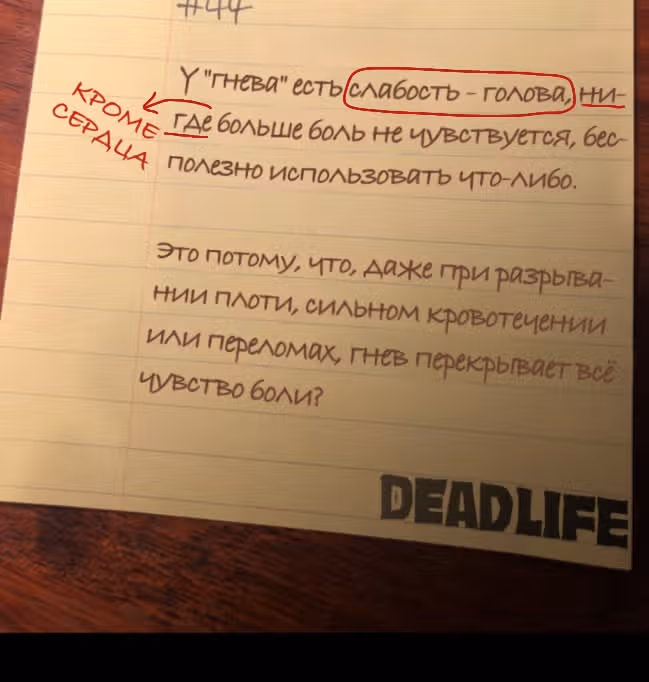 #44
У "гнева" есть слабость - голова, ни-
где больше боль не чувствуется, бес-
полезно использовать что-либо.
КРОМЕ
СЕРДЦА
Это потому, что, даже при разрыва-
нии плоти, сильном кровотечении
или переломах, гнев перекрывает всё
чувство боли?
DEADLIFE